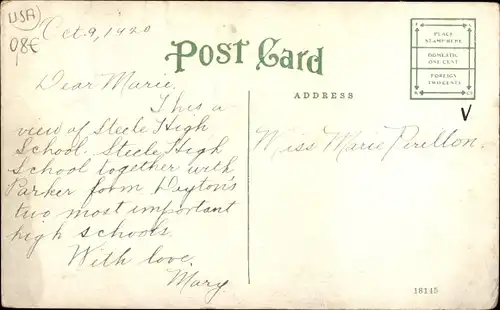 USA
08€
Oct. 9, 1920
POST CARD
ADDRESS
PLACE
STAMP HERE
DOMESTIC
ONE CENT
FOREIGN
TWO CENTS
V
Dear Marie,
This a
view of Steele High
School. Steele High
School together with
Parker form Dayton's
two most important
high schools.
With love,
Mary.
Miss Marie Perillon.
18145